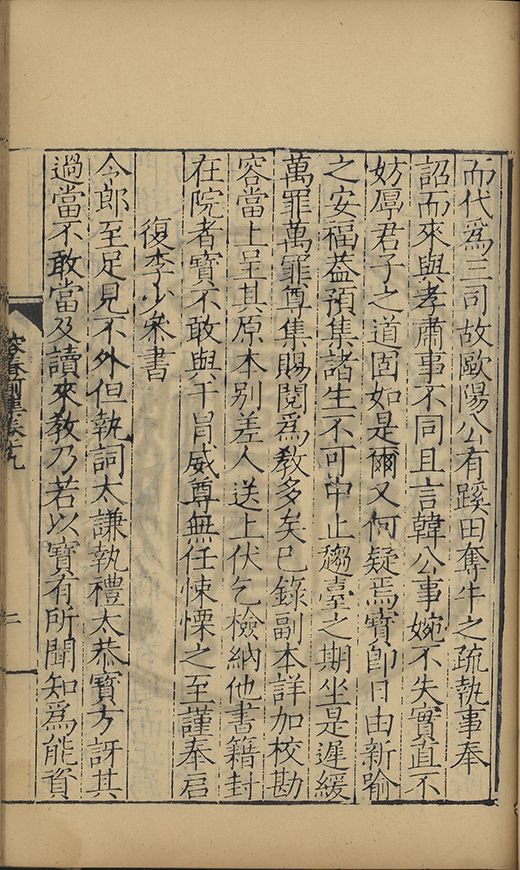 而代爲三司故歐陽公有蹊田奪牛之疏執事奉
詔而來與孝肅事不同且言韓公事婉不失實直不
妨厚君子之道固如是爾又何疑焉寳即日由新喻
之安福葢預集諸生不可中止趨臺之期坐是遲緩
萬罪萬罪尊集賜閱爲教多矣已錄副本詳加校勘
容當上呈其原本别差人送上伏乞檢納他書籍封
在院者寳不敢與干冐威尊無任悚慄之至謹奉啓
復李少𠫵書
今郎至足見不外但執詞太謙執禮太恭寳方訝其
過當不敢當及讀來教乃若以寳有所聞知爲能資
容春前集卷十九
二